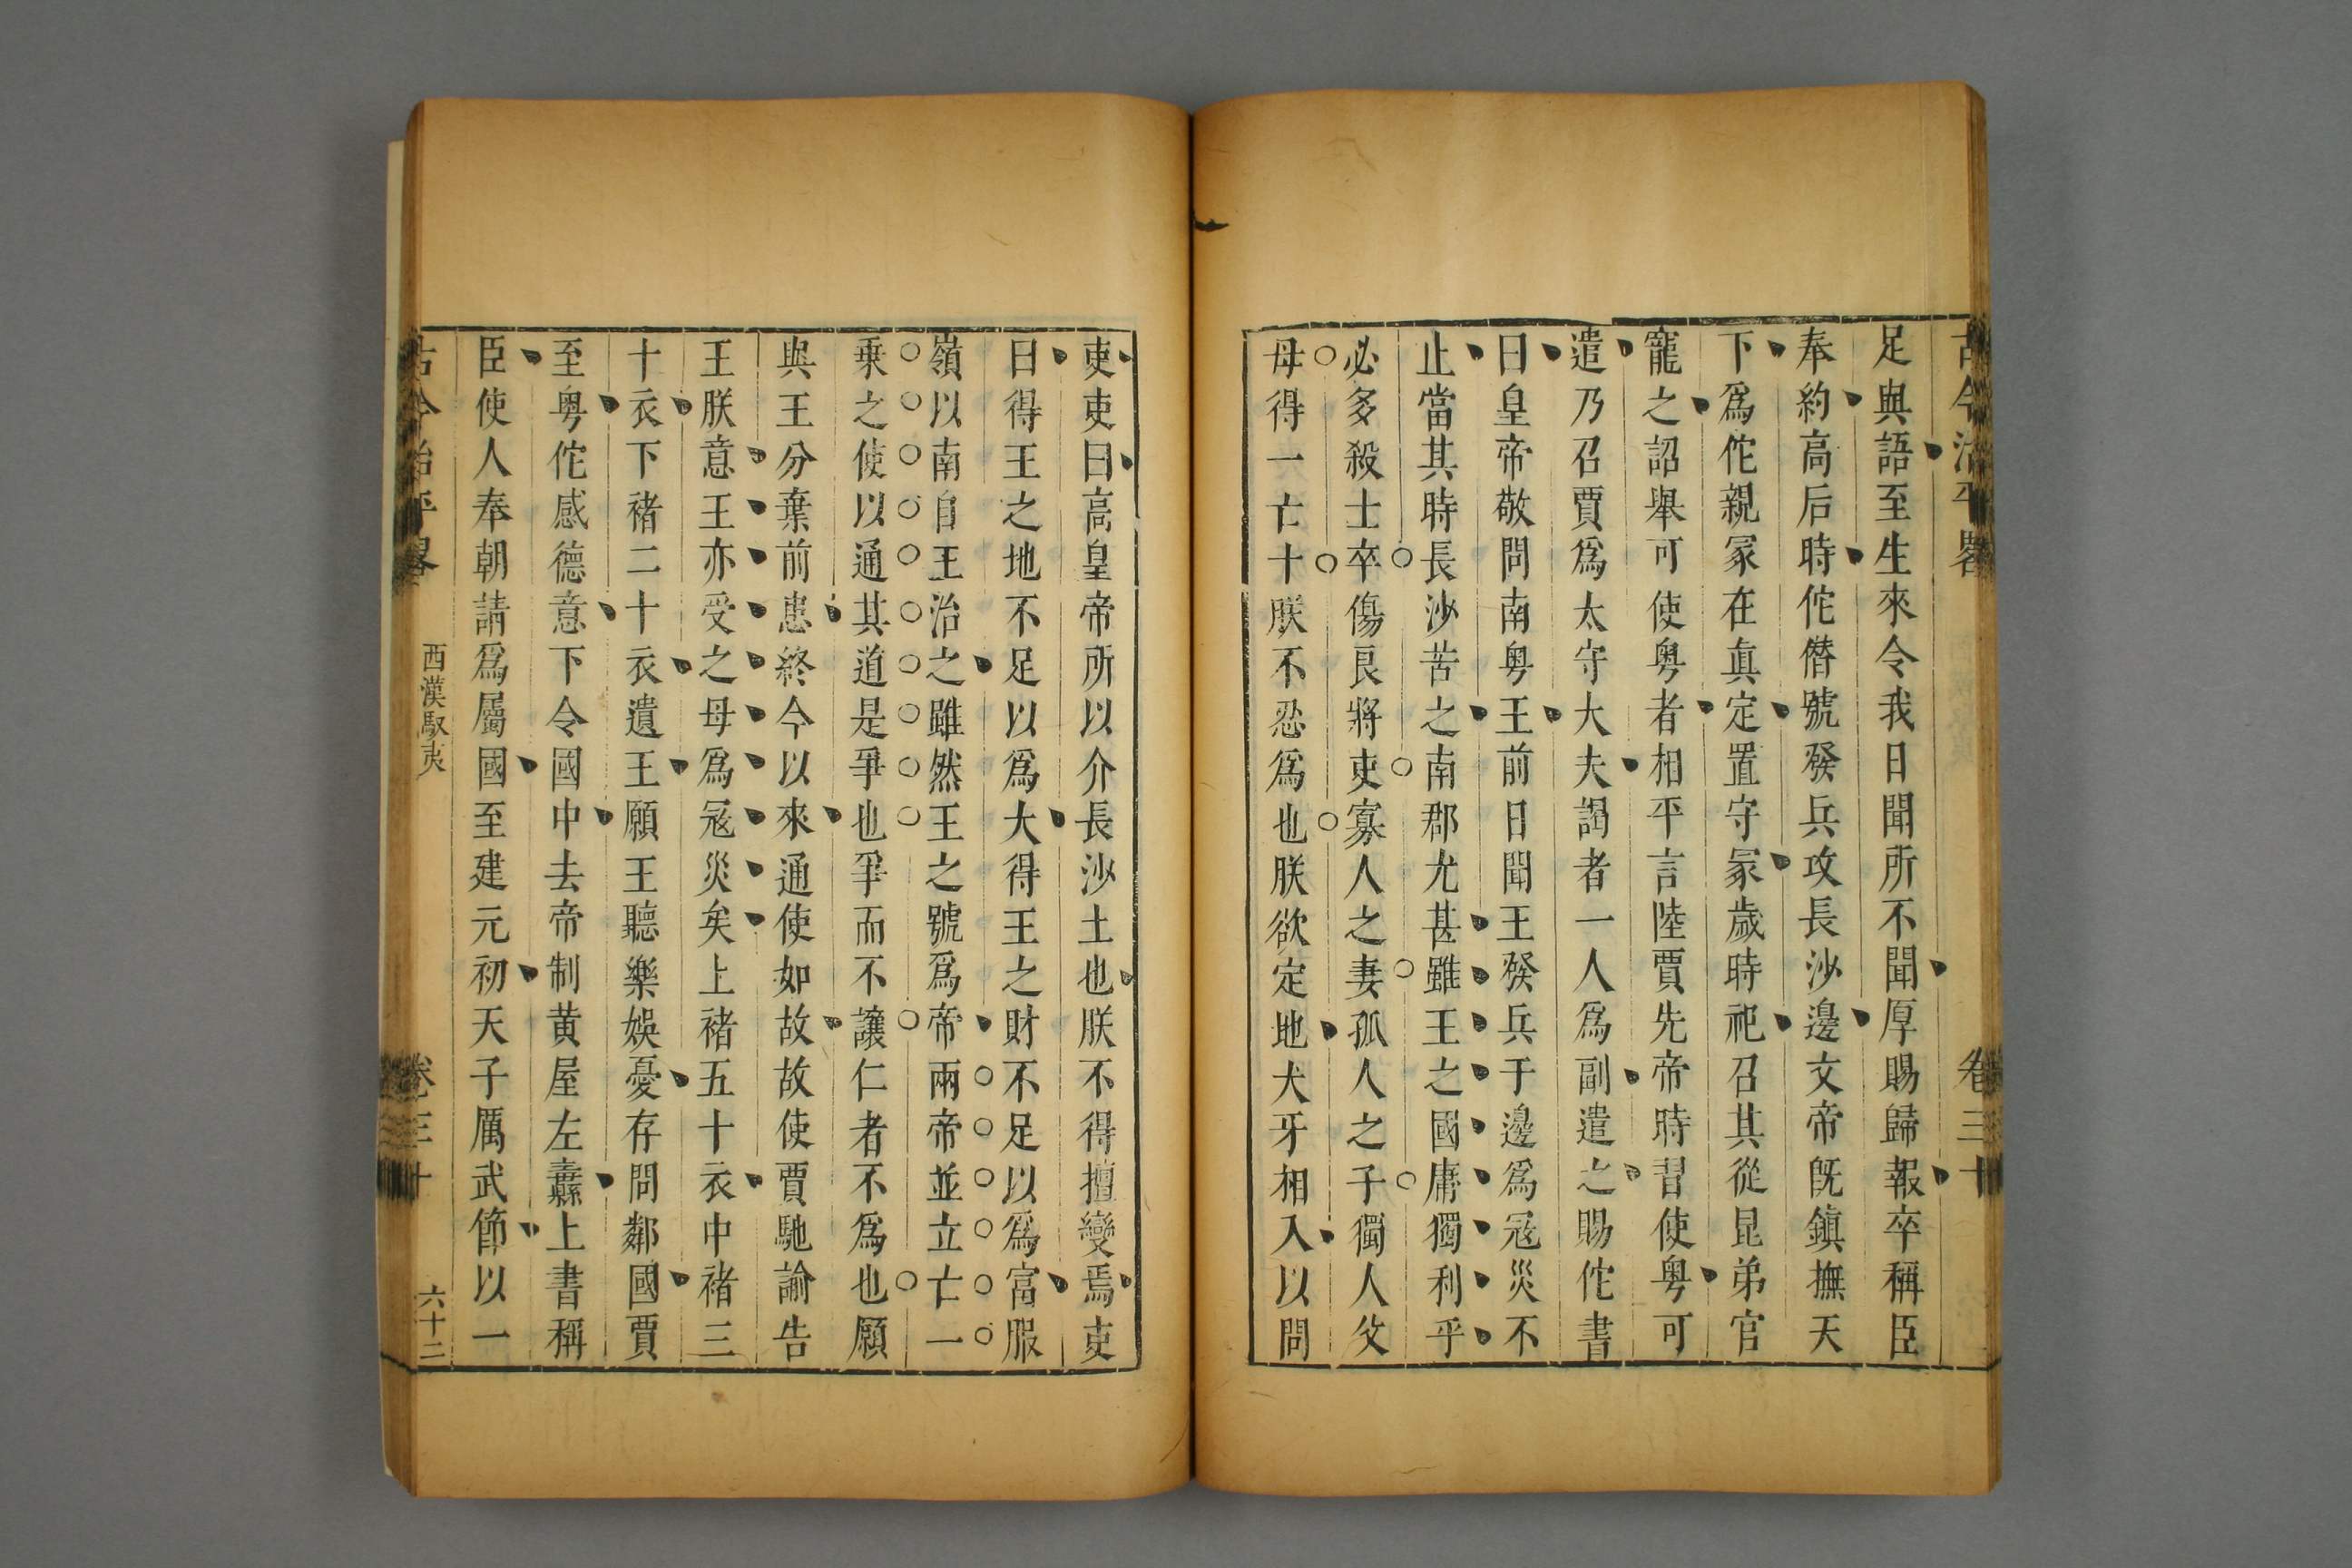 足與語至生來令我日聞所不聞厚賜歸報卒稱臣
奉約高后時佗僭號發兵攻長沙邊文帝旣鎮撫天
下爲佗親冢在真定置守冢歲時祀召其從昆弟官
寵之詔舉可使粵者相平言陸賈先帝時習使粵可
遣乃召賈爲太守大夫謁者一人爲副遣之賜佗書
曰皇帝敬問南粵王前日聞王發兵于邊爲寇災不
止當其時長沙苦之南郡尤甚雖王之國庸獨利乎
必多殺士卒傷良將吏寡人之妻孤人之子獨人父
母得一亡十朕不忍爲也朕欲定地犬牙相入以問
吏吏曰高皇帝所以介長沙土也朕不得擅變焉吏
曰得王之地不足以爲大得王之財不足以爲富服
嶺以南自王治之雖然王之號爲帝兩帝並立亡一
乗之使以通其道是爭也爭而不讓仁者不爲也願
與王分棄前患終今以來通使如故故使賈馳諭告
王朕意王亦受之毋爲寇災矣上褚五十衣中褚三
十衣下褚二十衣遺王願王聽樂娛憂存問鄰國賈
至粵佗感德意下令國中去帝制黄屋左纛上書稱
臣使人奉朝請爲屬國至建元初天子厲武節以一
古今治平畧
西漢馭夷
卷三十
六十二